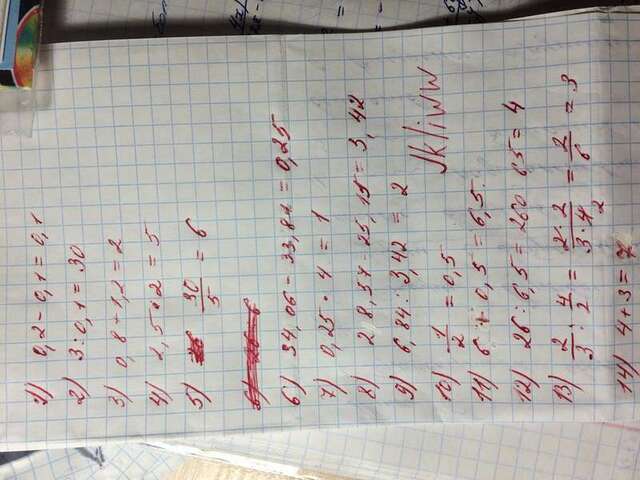 1) 0,2 - 0,1 = 0,1
2) 3 : 0,1 = 30
3) 0,8 + 1,2 = 2
4) 2,5 * 2 = 5
5) 30/5 = 6
6) 34,06 - 33,81 = 0,25
7) 0,25 • 4 = 1
8) 28,57 - 25,15 = 3,42
9) 6,84 : 3,42 = 2
10) 1/2 = 0,5
Jkliww
11) 6 + 0,5 = 6,5
12) 26 : 6,5 = 260 65 = 4
13) 2/3 : 4/2 = 2·2/3·4 2 = 2/6 = 3
14) 4 + 3 = 7